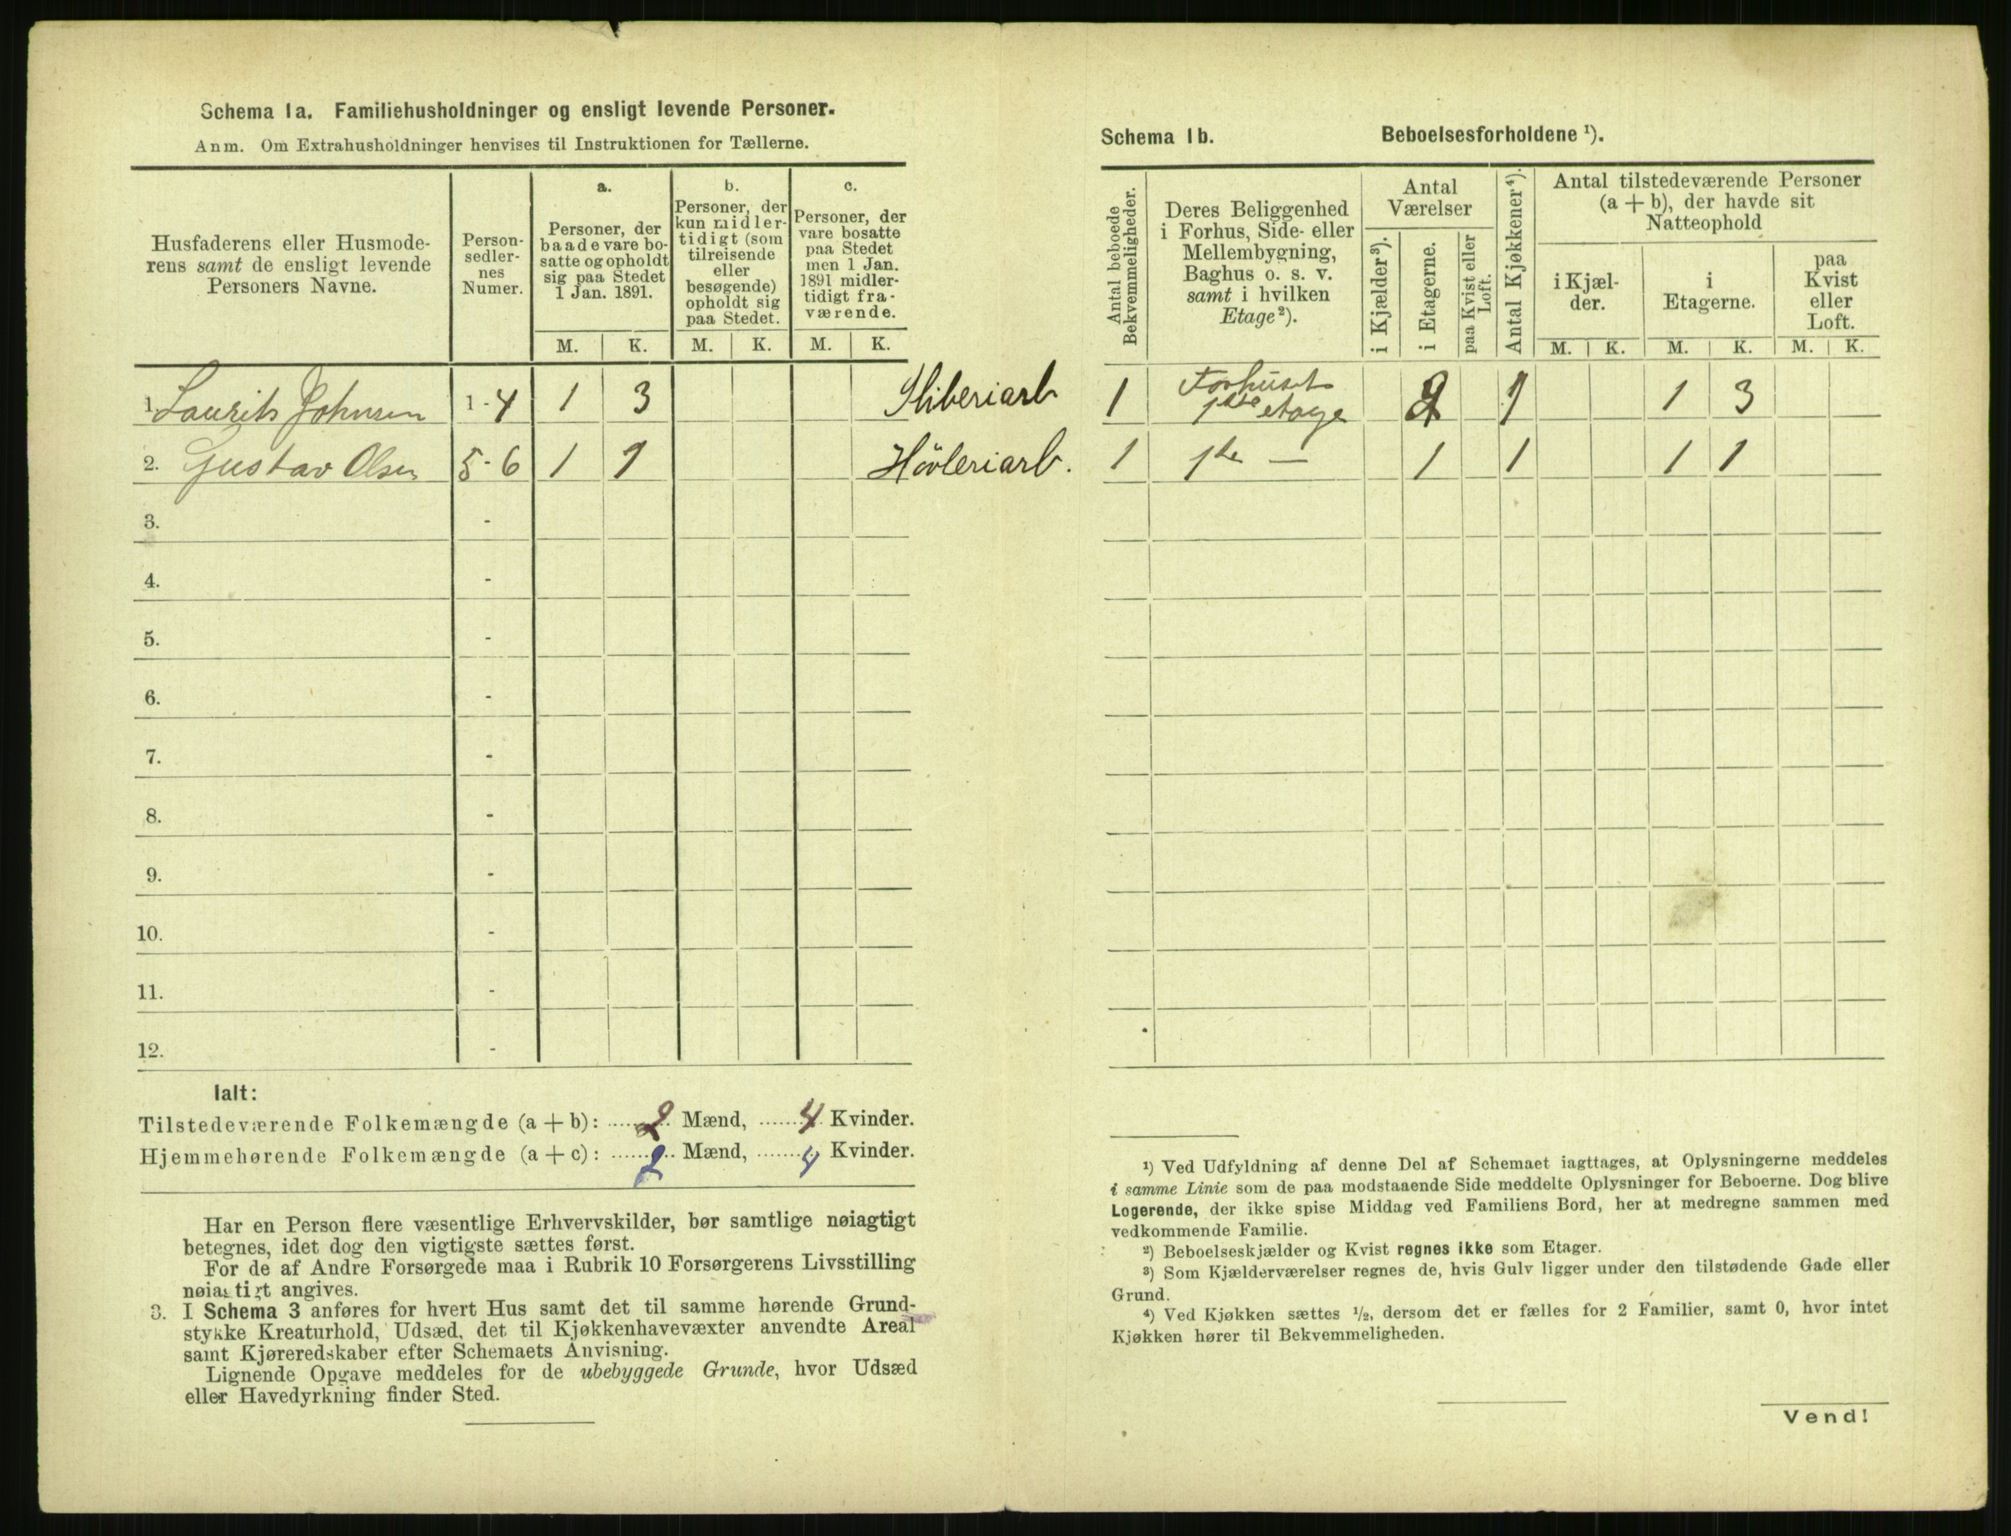 Schema 1a. Familiehusholdninger og ensligt levende Personer.
Anm. Om Extrahusholdninger henvises til Instruktionen for Tællerne.
Husfaderens eller Husmoderens samt de ensligt levende Personers Navne.
Personsedlernes Numer.
a. Personer, der baade vare bosatte og opholdt sig paa Stedet 1 Jan. 1891.
b. Personer, der kun midlertidigt (som tilreisende eller besøgende) opholdt sig paa Stedet.
c. Personer, der vare bosatte paa Stedet men 1 Jan. 1891 midlertidigt fraværende.
M. K. M. K. M. K.
1. Laurits Johnsen 1-4 1 3 Sliberiarb
2. Gustav Olsen 5-6 1 1 Høvleriarb.
3. -
4. -
5. -
6. -
7. -
8. -
9. -
10. -
11. -
12. -
Ialt:
Tilstedeværende Folkemængde (a + b): 2 Mænd, 4 Kvinder.
Hjemmehørende Folkemængde (a + c): 2 Mænd, 4 Kvinder.
Har en Person flere væsentlige Erhvervskilder, bør samtlige nøiagtigt
betegnes, idet dog den vigtigste sættes først.
For de af Andre Forsørgede maa i Rubrik 10 Forsørgerens Livsstilling
nøiagtigt angives.
3. I Schema 3 anføres for hvert Hus samt det til samme hørende Grund-
stykke Kreaturhold, Udsæd, det til Kjøkkenhavevæxter anvendte Areal
samt Kjøreredskaber efter Schemaets Anvisning.
Lignende Opgave meddeles for de ubebyggede Grunde, hvor Udsæd
eller Havedyrkning finder Sted.
Schema 1b. Beboelsesforholdene ¹).
Antal beboede Bekvemmeligheder.
Deres Beliggenhed i Forhus, Side- eller Mellembygning, Baghus o. s. v. samt i hvilken Etage²).
Antal Værelser
i Kjælder³).
i Etagerne.
paa Kvist eller Loft.
Antal Kjøkkener⁴).
Antal tilstedeværende Personer (a + b), der havde sit Natteophold
i Kjælder.
i Etagerne.
paa Kvist eller Loft.
M. K. M. K. M. K.
1 Forhuset 1ste etage 2 1 1 3
1 1te — 1 1 1 1
¹) Ved Udfyldning af denne Del af Schemaet iagttages, at Oplysningerne meddeles
i samme Linie som de paa modstaaende Side meddelte Oplysninger for Beboerne. Dog blive
Logerende, der ikke spise Middag ved Familiens Bord, her at medregne sammen med
vedkommende Familie.
²) Beboelseskjælder og Kvist regnes ikke som Etager.
³) Som Kjælderværelser regnes de, hvis Gulv ligger under den tilstødende Gade eller
Grund.
⁴) Ved Kjøkken sættes ½, dersom det er fælles for 2 Familier, samt 0, hvor intet
Kjøkken hører til Bekvemmeligheden.
Vend!